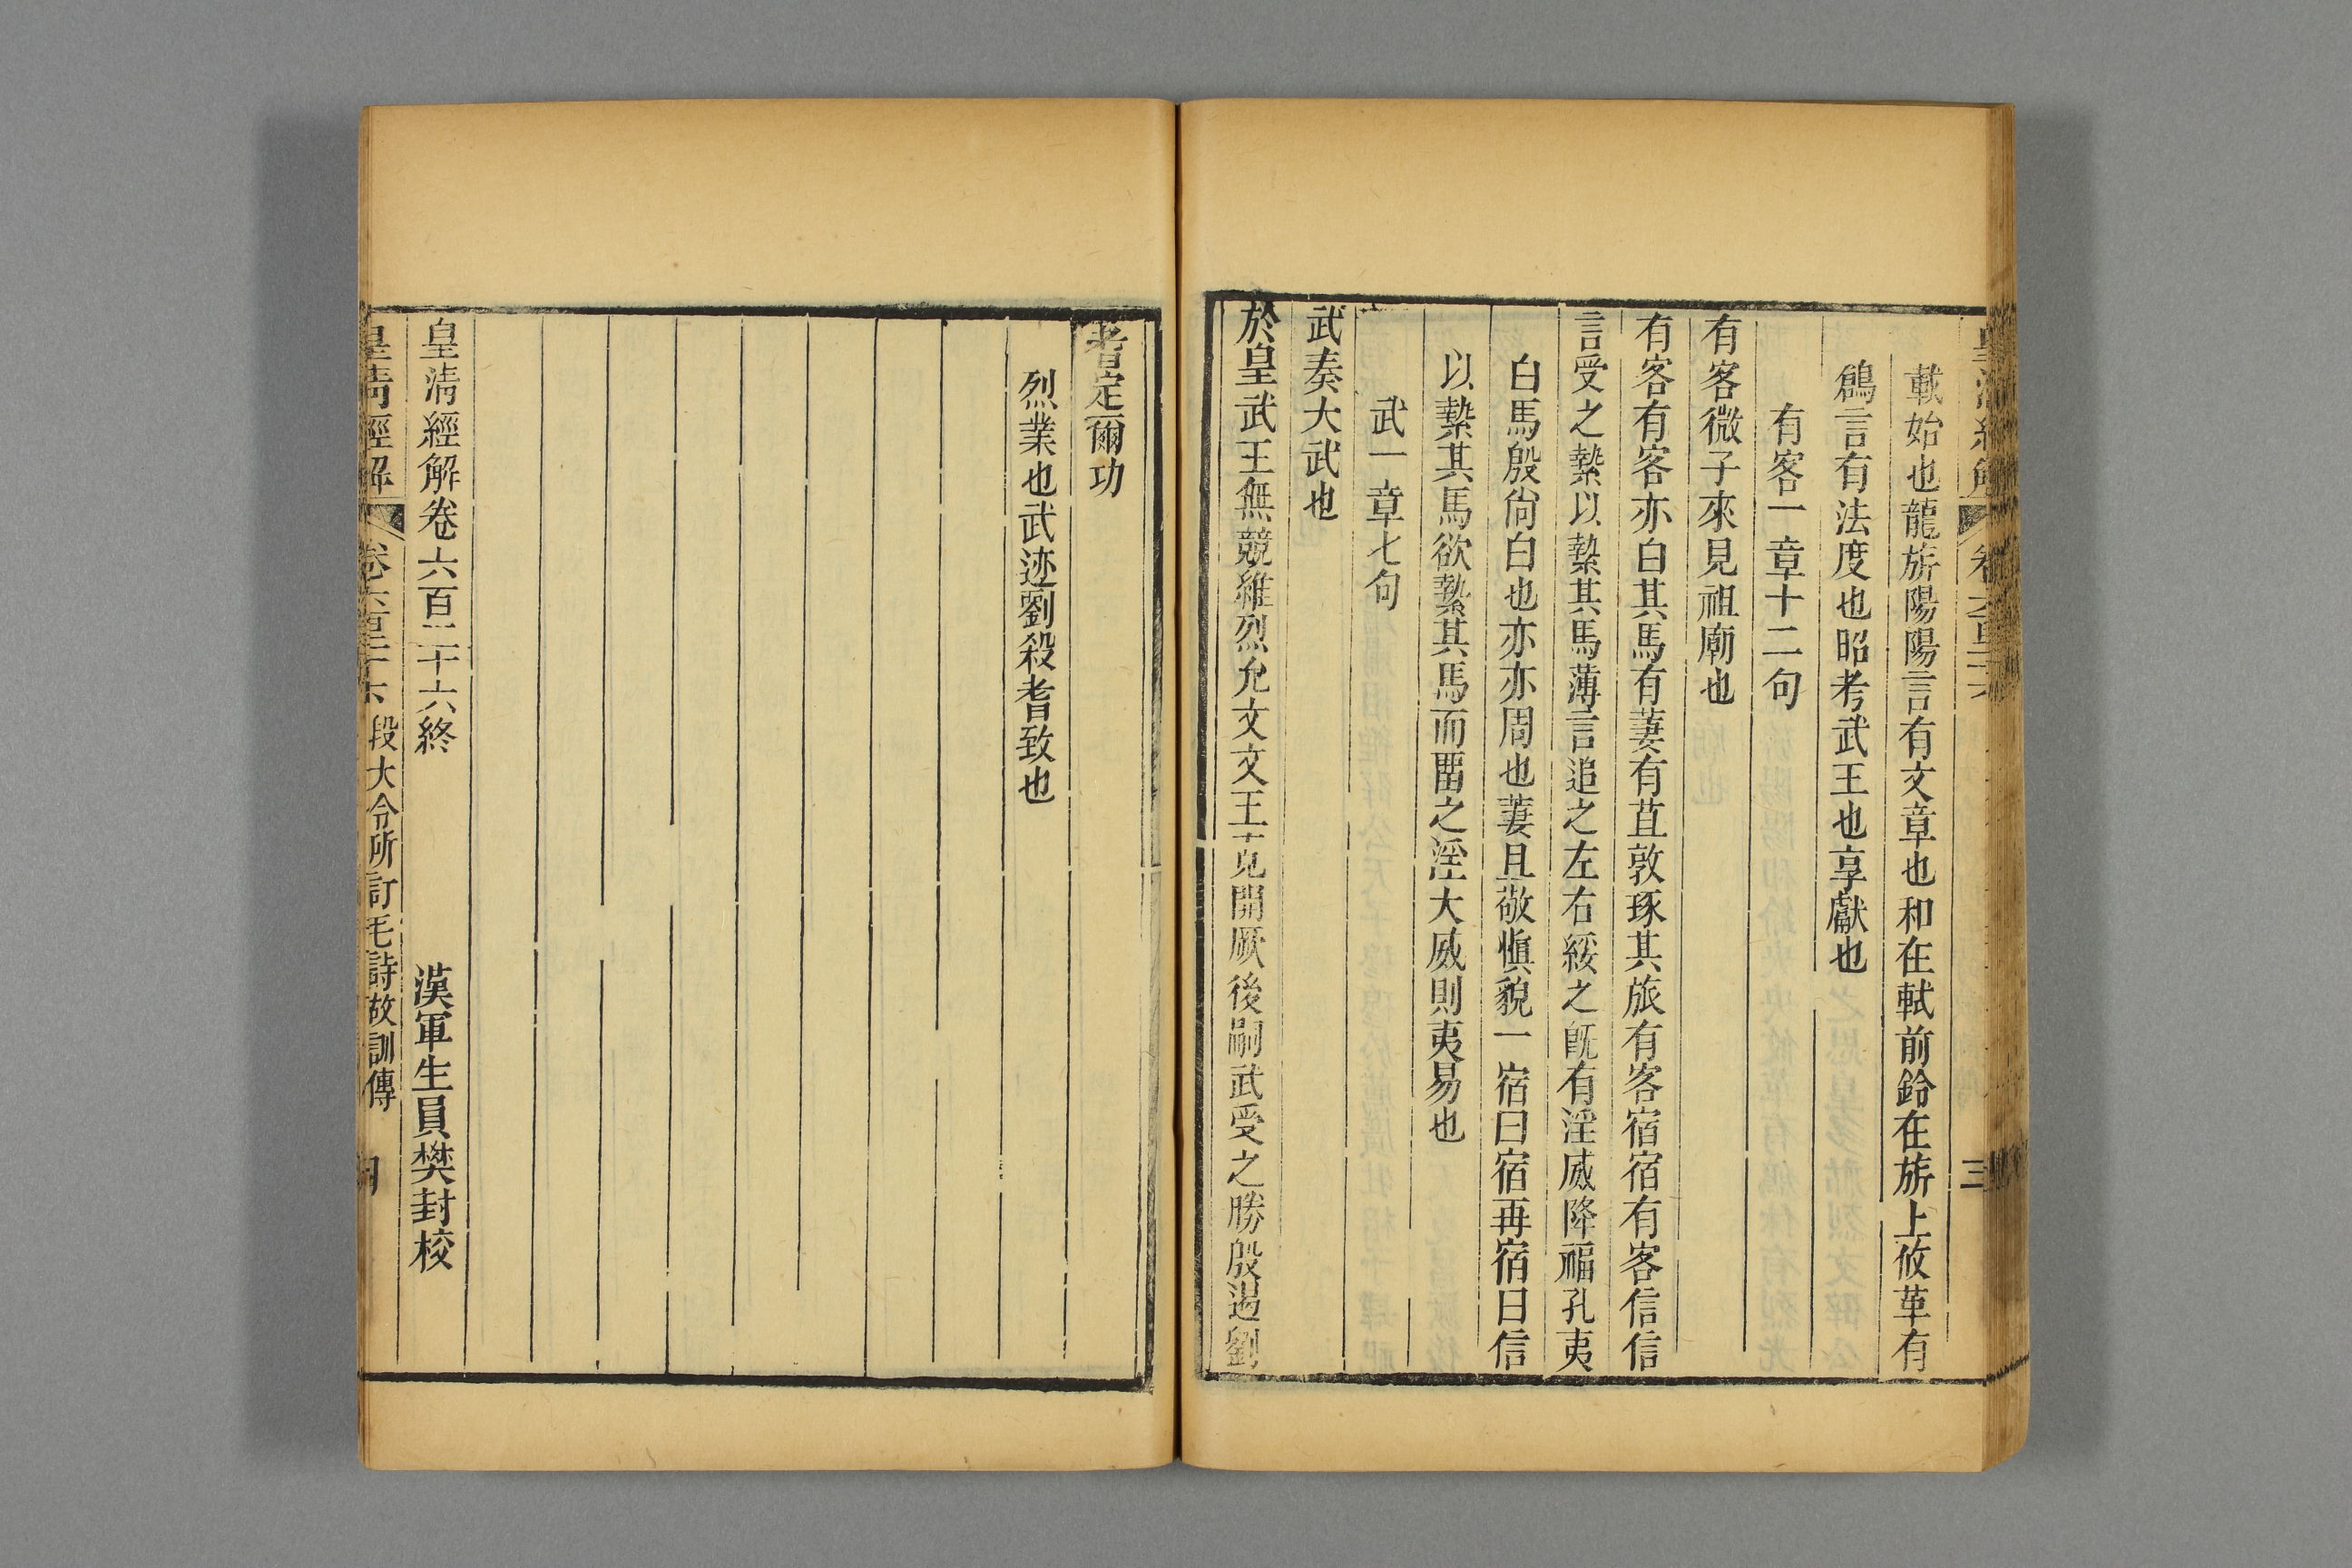 載始也龍旂陽陽言有文章也和在軾前鈴在旂上攸革有
鶬言有法度也昭考武王也享獻也
有客一章十二句
有客微子來見祖廟也
有客有客亦白其馬有萋有苴敦琢其旅有客宿宿有客信信
言受之縶以縶其馬薄言追之左右綏之旣有淫威降福孔夷
白馬殷尙白也亦亦周也萋且敬愼貌一宿曰宿再宿曰信
以縶其馬欲縶其馬而畱之淫大威則夷易也
武一章七句
武奏大武也
於皇武王無競維烈允文文王克開厥後嗣武受之勝殷遏劉
耆定爾功
烈業也武迹劉殺耆致也
皇淸經解卷六百二十六終 漢軍生員樊封校
皇淸經解 卷六百二十六 段大令所訂毛詩故訓傳